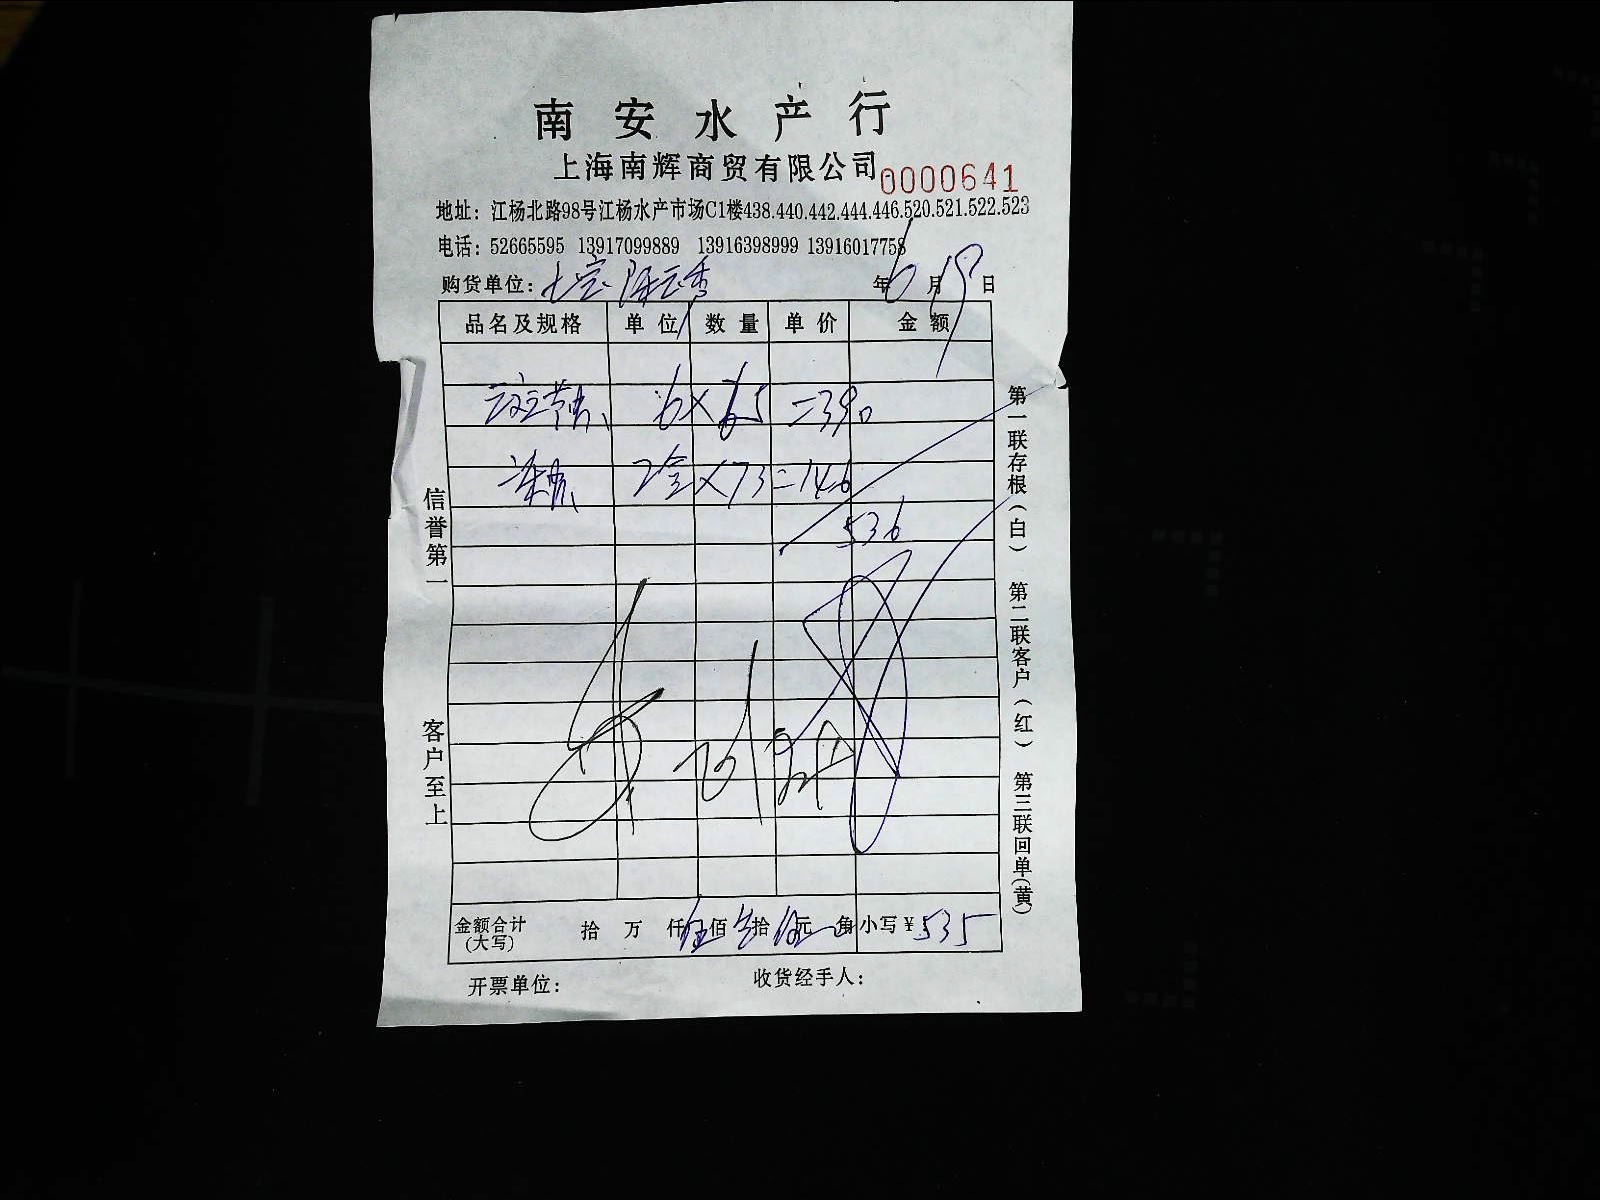 南安水产行
上海南辉商贸有限公司 0000641
地址：江杨北路98号江杨水产市场C1楼438.440.442.444.446.520.521.522.523
电话：52665595 13917099889 13916398999 13916017758
购货单位：七宝 陈云秀 年6月19日
品名及规格 单位 数量 单价 金额
6×65=390
2盒×73=146
536
信誉第一
客户至上
第一联存根(白) 第二联客户(红) 第三联回单(黄)
金额合计(大写) 拾 万 仟伍佰叁拾伍元 角 小写￥535
开票单位： 收货经手人：